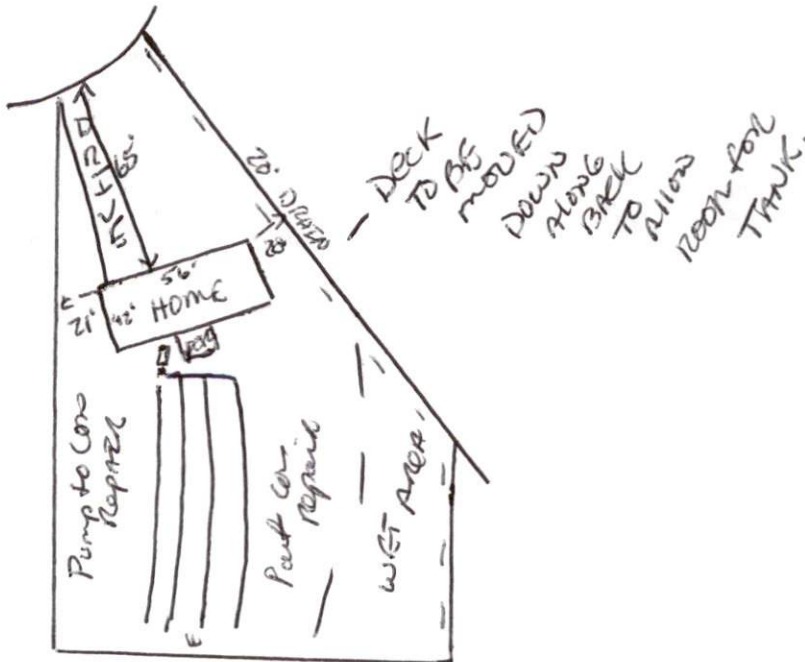 65'
20' DRAIN
DECK
TO BE
MOVED
DOWN
ALONG
BACK
TO
Allow
ROOM for
TANK.
56'
42'
HOME
21'
Pump to Con
Repair
Con
Repair
WET AREA